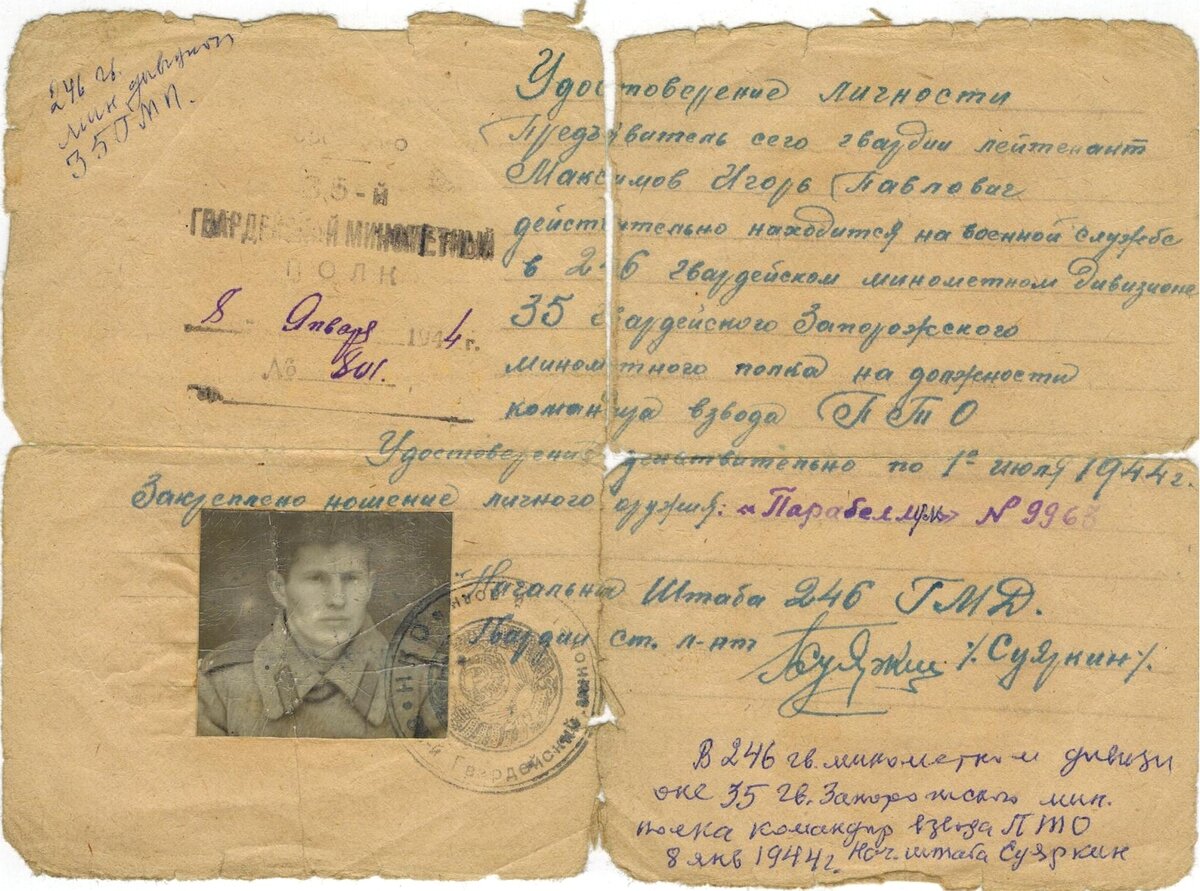 246 гв.
мин. дивизион
35 ГМП.
35-й
ГВАРДЕЙСКИЙ МИНОМЕТНЫЙ
ПОЛК
8 Января 1944 г.
№ 801.
Удостоверение личности
Предъявитель сего гвардии лейтенант
Максимов Игорь Павлович
действительно находится на военной службе
в 246 гвардейском минометном дивизионе
35 гвардейского Запорожского
минометного полка на должности
командира взвода ПТО
Удостоверение действительно по 1е июля 1944 г.
Закреплено ношение личного оружия: «Парабеллум» № 9963
Начальник Штаба 246 ГМД.
Гвардии ст. л-нт Суяркин /Суяркин/.
Гвардейский
В 246 гв. минометном дивизи
оне 35 гв. Запорожского мин.
полка командир взвода ПТО
8 янв 1944г. Нач. штаба Суяркин